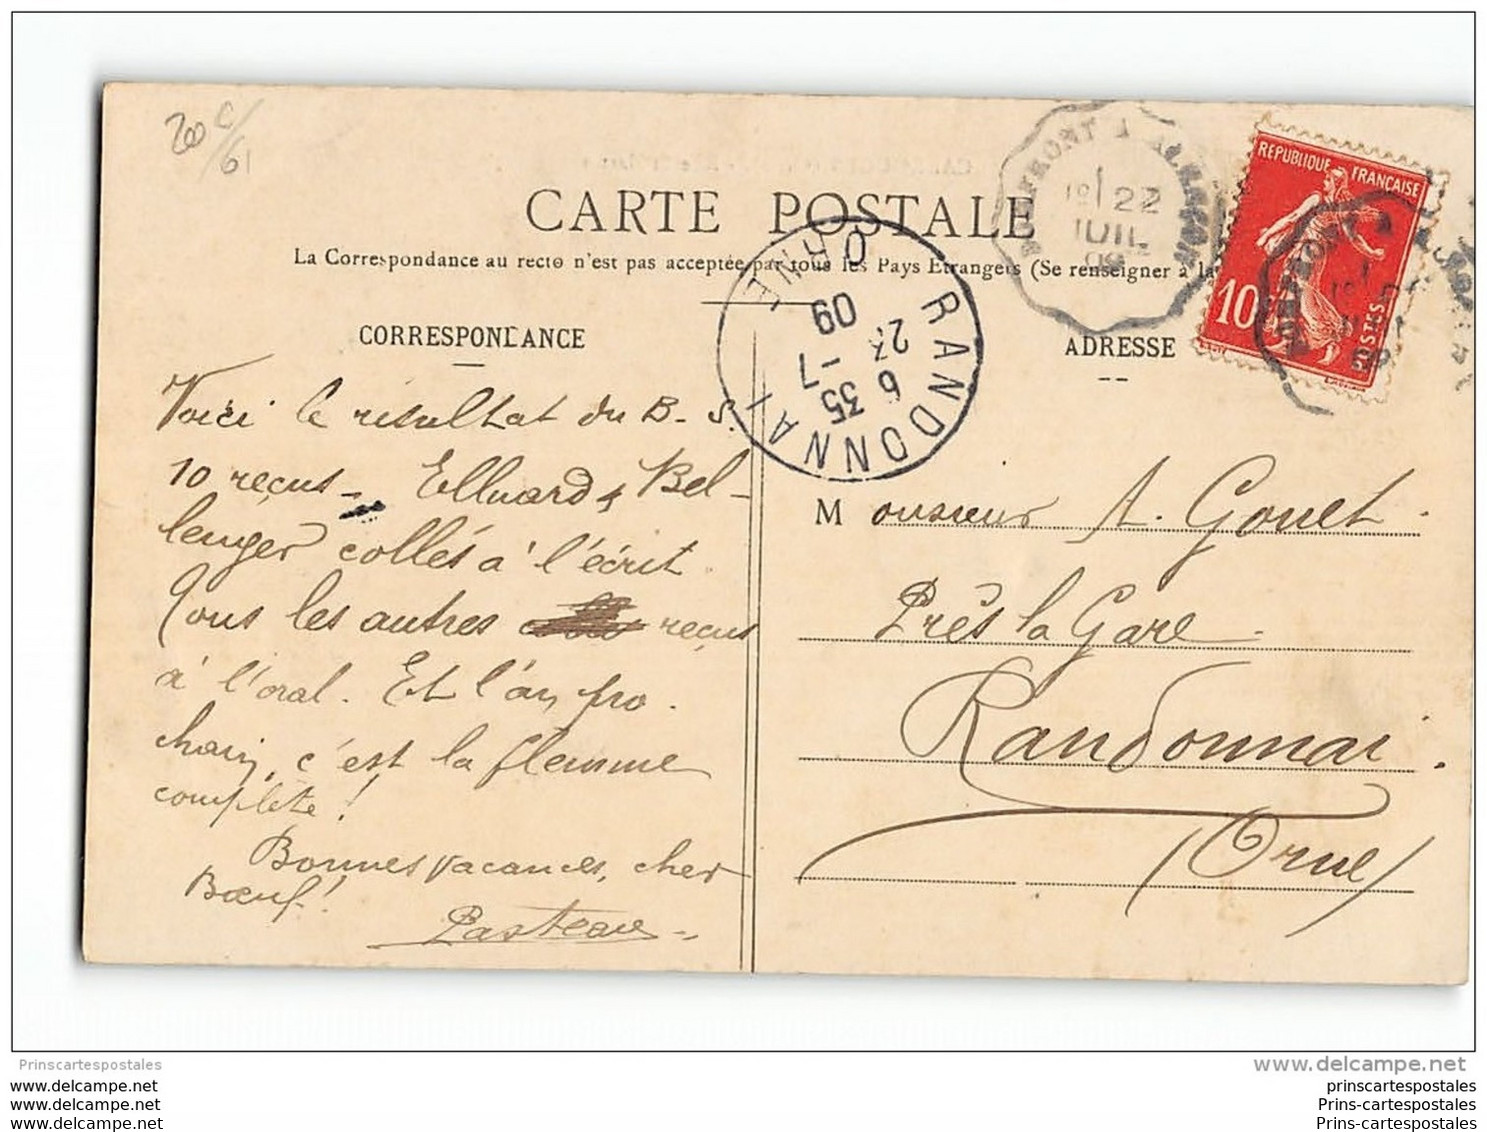 200 c/61
CARTE POSTALE
La Correspondance au recto n'est pas acceptée par tous les Pays Etrangers (Se renseigner à la
CORRESPONDANCE
Voici le résultat du B. S.
10 reçus - Elluard & Bel-
lenger collés à l'écrit.
Tous les autres reçus
à l'oral. Et l'an pro-
chain, c'est la flemme
complète !
Bonnes vacances, cher
Bœuf !
Pasteau
DOMFRONT A ALENÇON
1º 22
JUIL
09
RANDONNAI
ORNE
6 35
23 -7
09
REPUBLIQUE FRANÇAISE
10
POSTES
ADRESSE
Monsieur A. Gouet.
Près la Gare
Randonnai.
(Orne)
Prinscartespostales
www.delcampe.net
www.delcampe.net
www.delcampe.net
www.delcampe.net
prinscartespostales
Prins-cartespostales
Prins-cartespostales